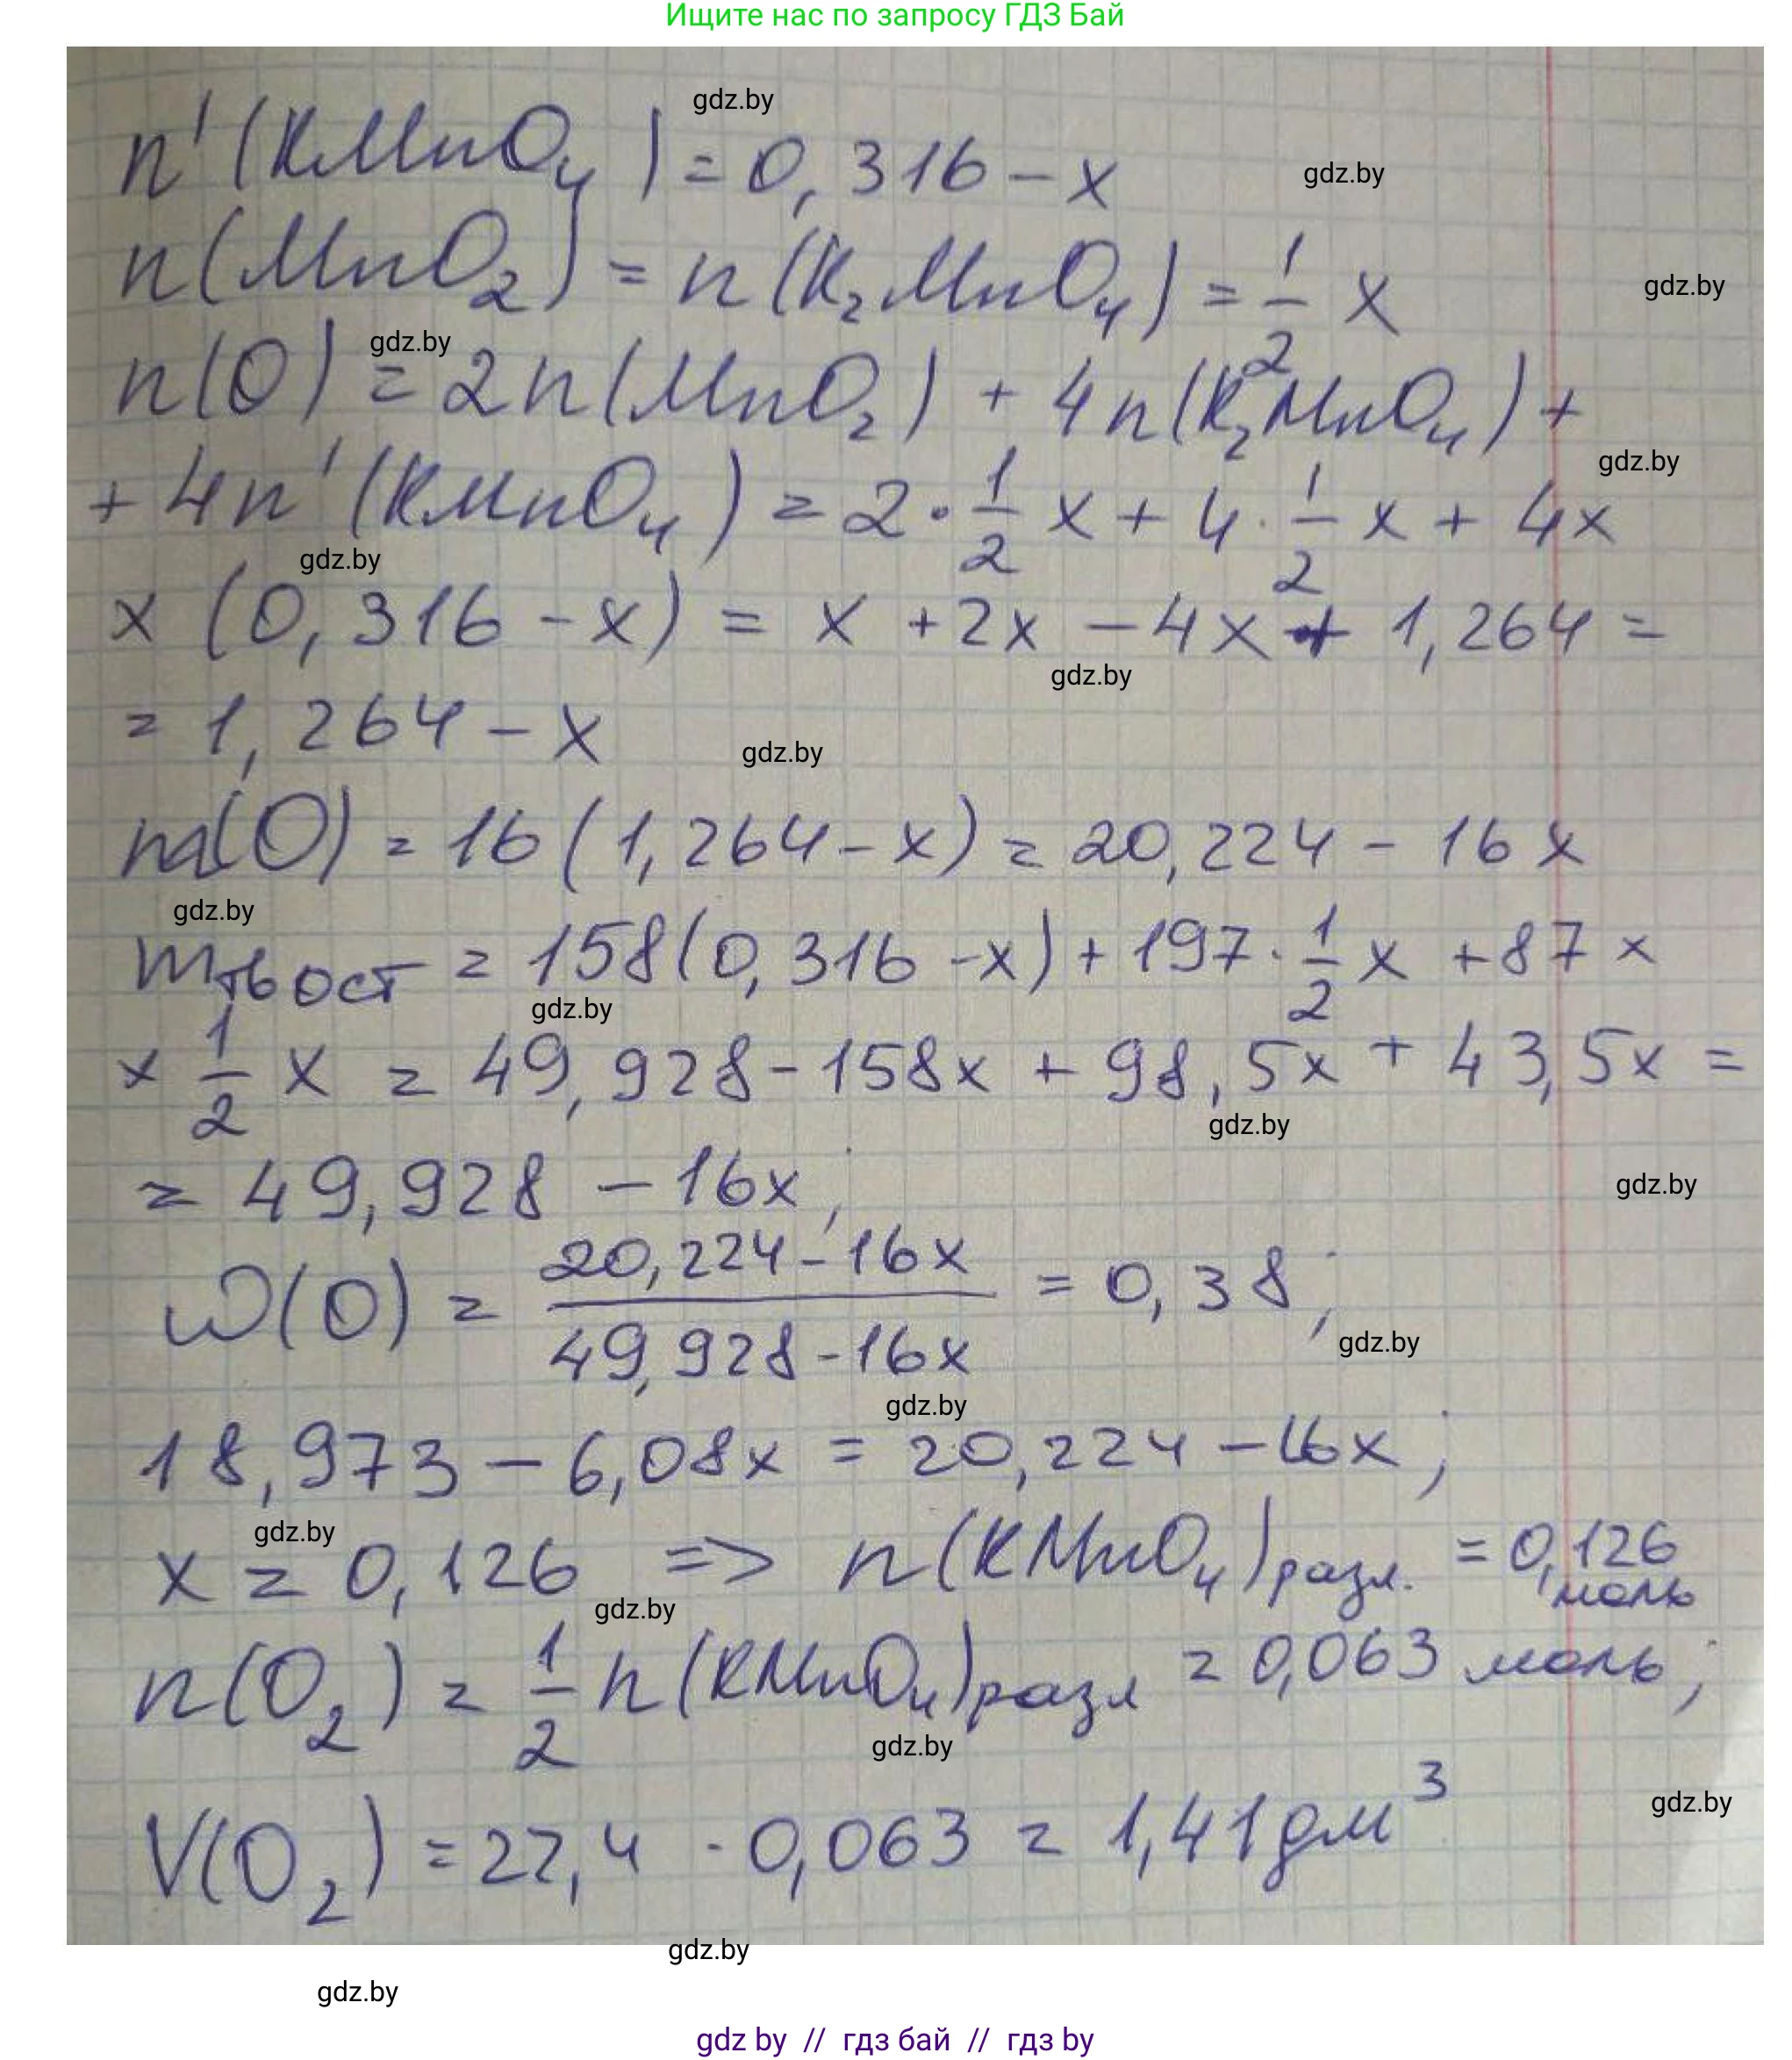 Ищите нас по запросу ГДЗ Бай
gdz.by
n'(KMnO₄) = 0,316 - x
gdz.by
n(MnO₂) = n(K₂MnO₄) = 1/2 x
gdz.by
gdz.by
n(O) = 2n(MnO₂) + 4n(K₂MnO₄) +
gdz.by
+ 4n'(KMnO₄) = 2 · 1/2 x + 4 · 1/2 x + 4x
gdz.by
x (0,316 - x) = x + 2x - 4x + 1,264 =
gdz.by
= 1,264 - x
gdz.by
m(O) = 16 (1,264 - x) = 20,224 - 16x
gdz.by
mтв ост = 158(0,316 - x) + 197 · 1/2 x + 87 x
gdz.by
x 1/2 x = 49,928 - 158x + 98,5x + 43,5x =
gdz.by
= 49,928 - 16x;
gdz.by
ω(O) = (20,224 - 16x)/(49,928 - 16x) = 0,38;
gdz.by
gdz.by
18,973 - 6,08x = 20,224 - 16x;
gdz.by
x = 0,126 => n(KMnO₄)разл. = 0,126 моль
gdz.by
n(O₂) = 1/2 n(KMnO₄)разл = 0,063 моль;
gdz.by
gdz.by
V(O₂) = 22,4 · 0,063 = 1,41 дм³
gdz.by
gdz.by
gdz by // гдз бай // гдз by